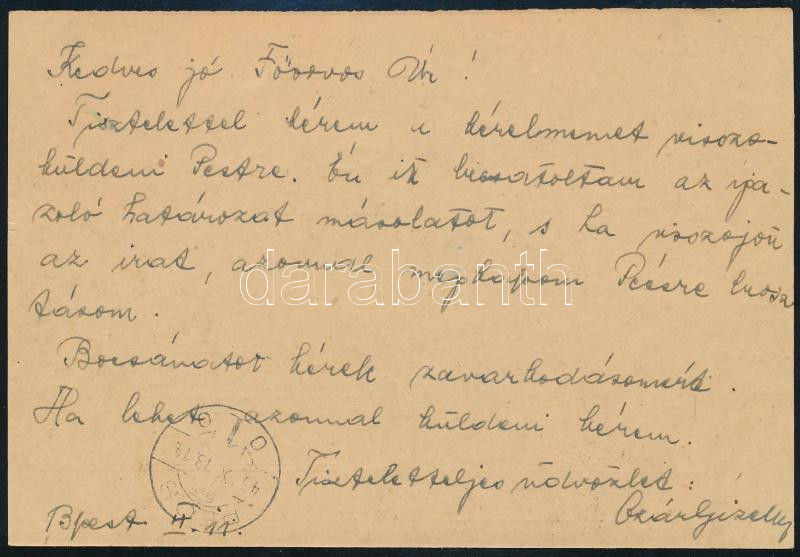 Kedves jó Főorvos Úr!
Tisztelettel kérem a kérelmemet vissza-
küldeni Pestre. Én itt becsatoltam az iga-
zoló határozat másolatot, s ha visszajön
az irat, azonnal megkapom Pécsre beosz
tásom.
Bocsánatot kérek zavarkodásomért.
Ha lehet azonnal küldeni kérem.
Tiszteletteljes üdvözlet:
Bpest II. 11.
darabanth